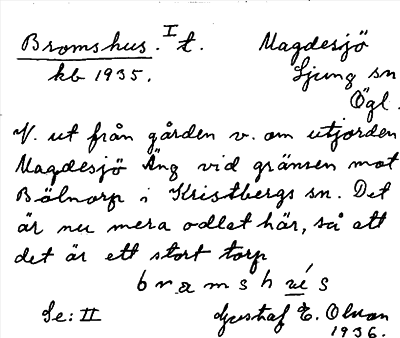 Bromshus. I t. Magdesjö
kb 1935. Ljung sn
Ögl.
V. ut från gården v. om utjorden
Magdesjö Äng vid gränsen mot
Bälnorp i Kristbergs sn. Det
är nu mera odlat här, så att
det är ett stort torp
bramshués
Se: II Gustaf E. Olson
1936.